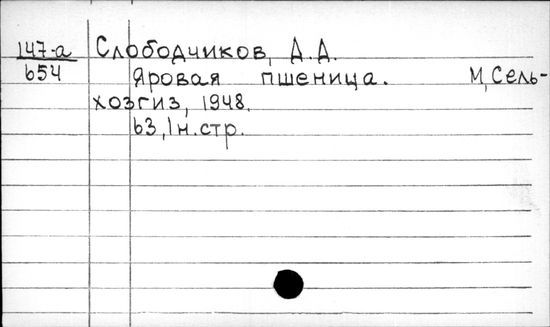 147-а Слободчиков, Д.Д.
654 Яровая пшеница. М, Сель-
хозгиз, 1948.
63, 1н.стр.